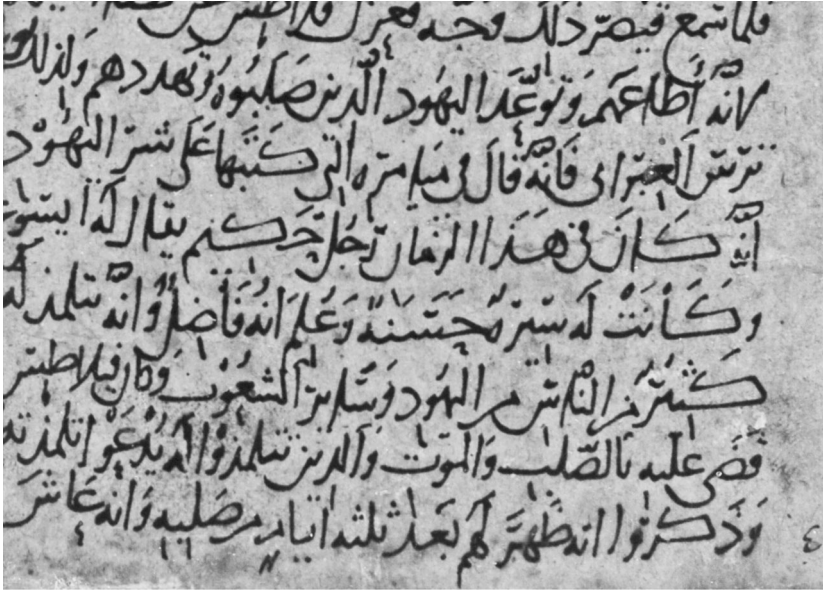 فلما سمع قيصر ذلك وجه فعزل فلاطس
لانه أطاعهم وتوعّد اليهود الّذين صلبوه وتهددهم ولذلك
العبراني فانه قال في ميامره التي كتبها على شر اليهود
انّه كان في هذا الزمان رجل حكيم يقال له ايسوع
وكانت له سيرة حسنة وعلم انه فاضل وانه تتلمذ له
كثير من الناس من اليهود وسائر الشعوب وكان فيلاطس
قضى عليه بالصّلب والموت والذين تتلمذوا له يدعوا تلمذته
وذكروا انه ظهر لهم بعد ثلثه ايام من صلبه وانه عاش
٤